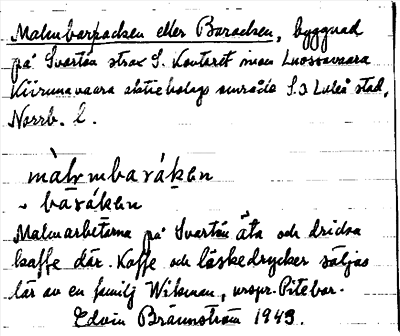 Malmbarracken eller Baracken, byggnad
på Svartön strax S. Kontoret inom Luossavaara
Kiirunavaara aktiebolags område S.O Luleå stad,
Norrb. l.
màlmbaráken
~ bàráken
Malmarbetarna på Svartön äta och dricka
kaffe där. Kaffe och läskedrycker säljas
där av en familj Wikman, urspr. Pitebor.
Edvin Brännström 1943.